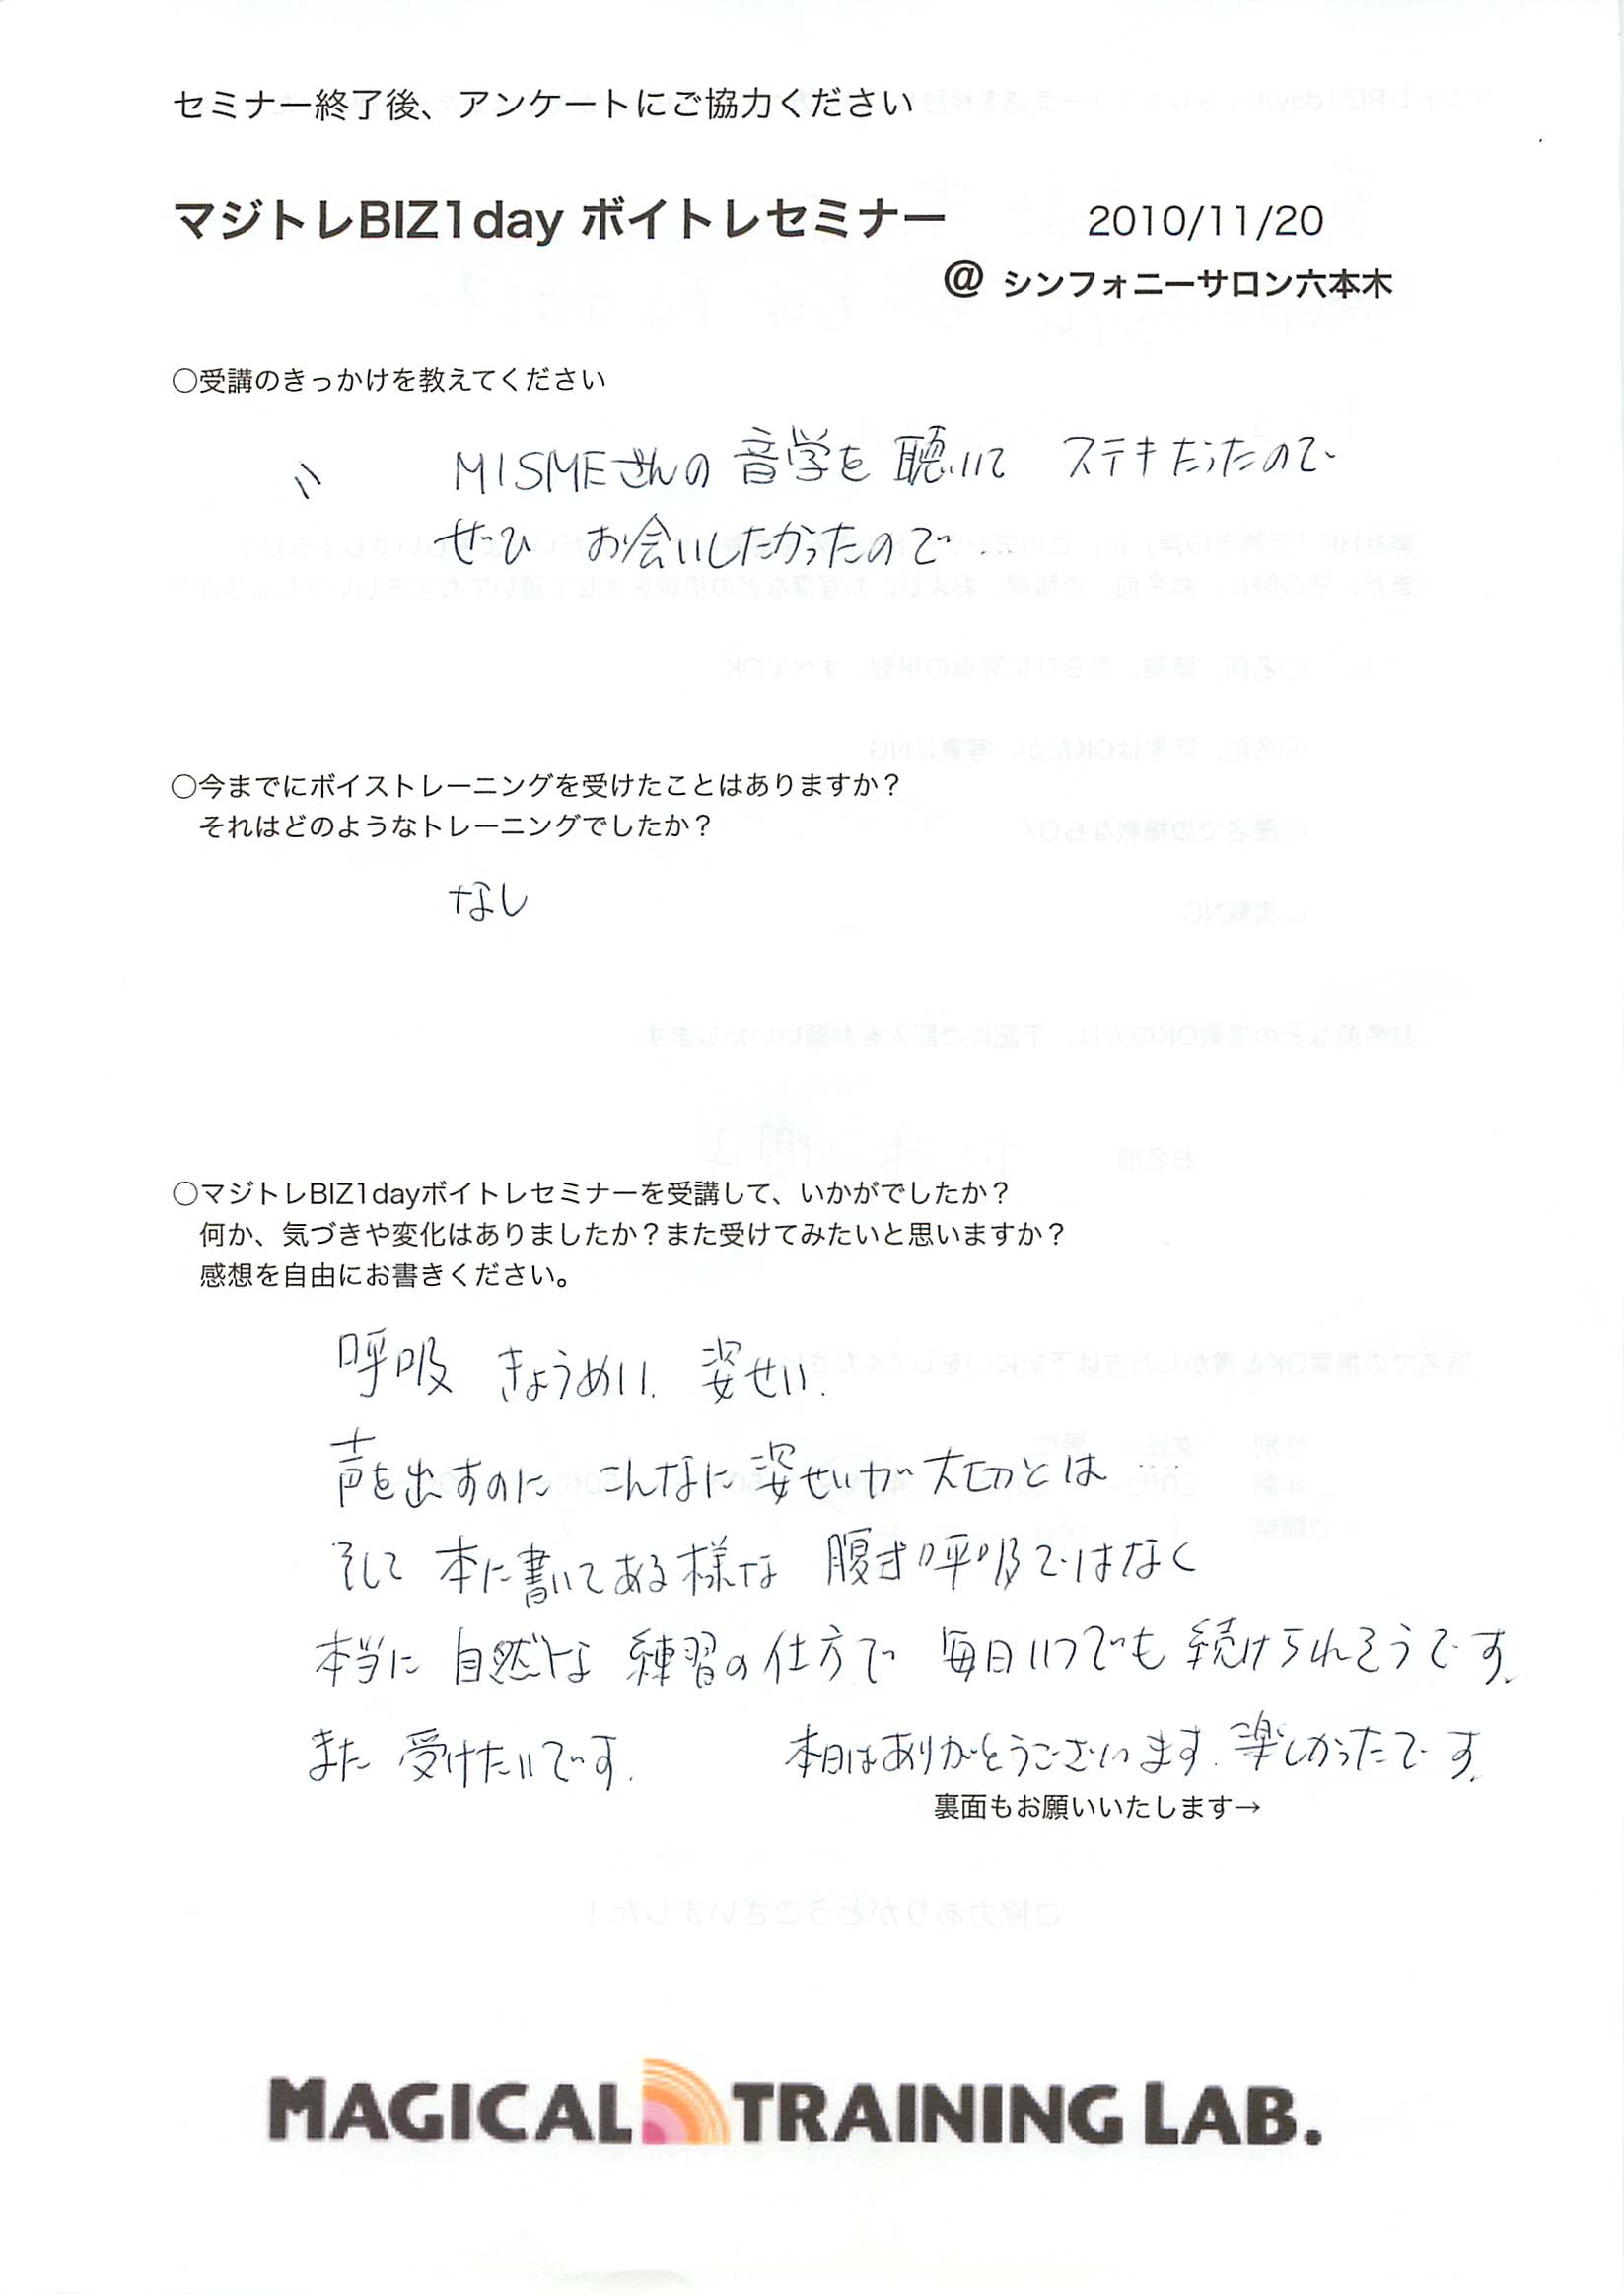 セミナー終了後、アンケートにご協力ください
マジトレBIZ1day ボイトレセミナー 2010/11/20
@ シンフォニーサロン六本木
○受講のきっかけを教えてください
MISMEさんの 音学を 聴いて ステキだったので
ぜひ お会いしたかったので…
○今までにボイストレーニングを受けたことはありますか？
それはどのようなトレーニングでしたか？
なし
○マジトレBIZ1dayボイトレセミナーを受講して、いかがでしたか？
何か、気づきや変化はありましたか？また受けてみたいと思いますか？
感想を自由にお書きください。
呼吸 きょうめい. 姿せい.
声を出すのに こんなに 姿せいが 大切とは…
そして 本に書いてある様な 腹式呼吸ではなく
本当に 自然な 練習の仕方で 毎日いつでも 続けられそうです.
また 受けたいです. 本日はありがとうございます. 楽しかったです.
裏面もお願いいたします→
MAGICAL TRAINING LAB.